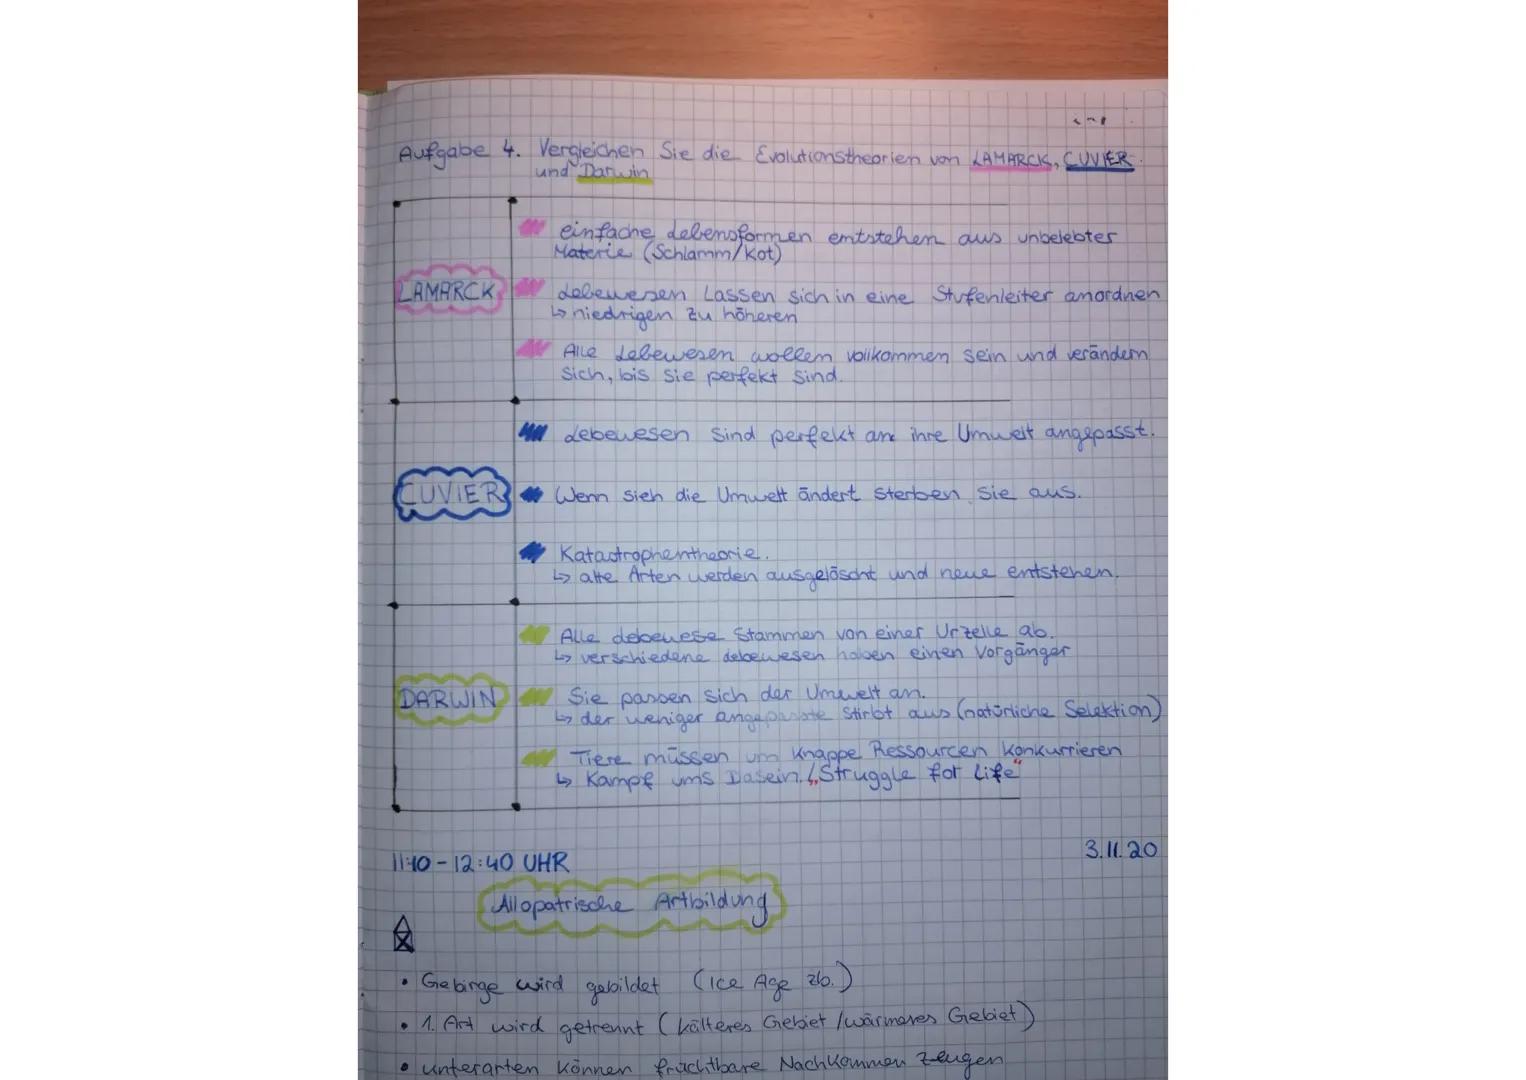 Aufgabe 4. Vergleichen Sie die Evolutionstheorien von LAMARCK, CUVIER
und Darwin
einfache Lebensformen entstehen aus unbelebter
Materie (Schlamm/Kot)
LAMARCK
Lebewesen Lassen sich in eine Stufenleiter anordnen
↳ niedrigen zu höheren
Alle Lebewesen wollen vollkommen sein und verändern
sich, bis sie perfekt sind.
Lebewesen sind perfekt an ihre Umwelt angepasst.
CUVIER
Wenn sich die Umwelt ändert sterben sie aus.
Katastrophentheorie.
↳ alte Arten werden ausgelöscht und neue entstehen.
Alle Lebewese Stammen von einer Urzelle ab.
↳ verschiedene Lebewesen haben einen Vorgänger
DARWIN
Sie passen sich der Umwelt an.
↳ der weniger angepasste stirbt aus (natürliche Selektion)
Tiere müssen um knappe Ressourcen konkurrieren
↳ Kampf ums Dasein. „Struggle for Life"
11:10 - 12:40 UHR
3.11.20
Allopatrische Artbildung
• Gebirge wird gebildet (Ice Age zb.)
• 1. Art wird getrennt (kälteres Gebiet / wärmeres Gebiet)
• unterarten können fruchtbare Nachkommen zeugen